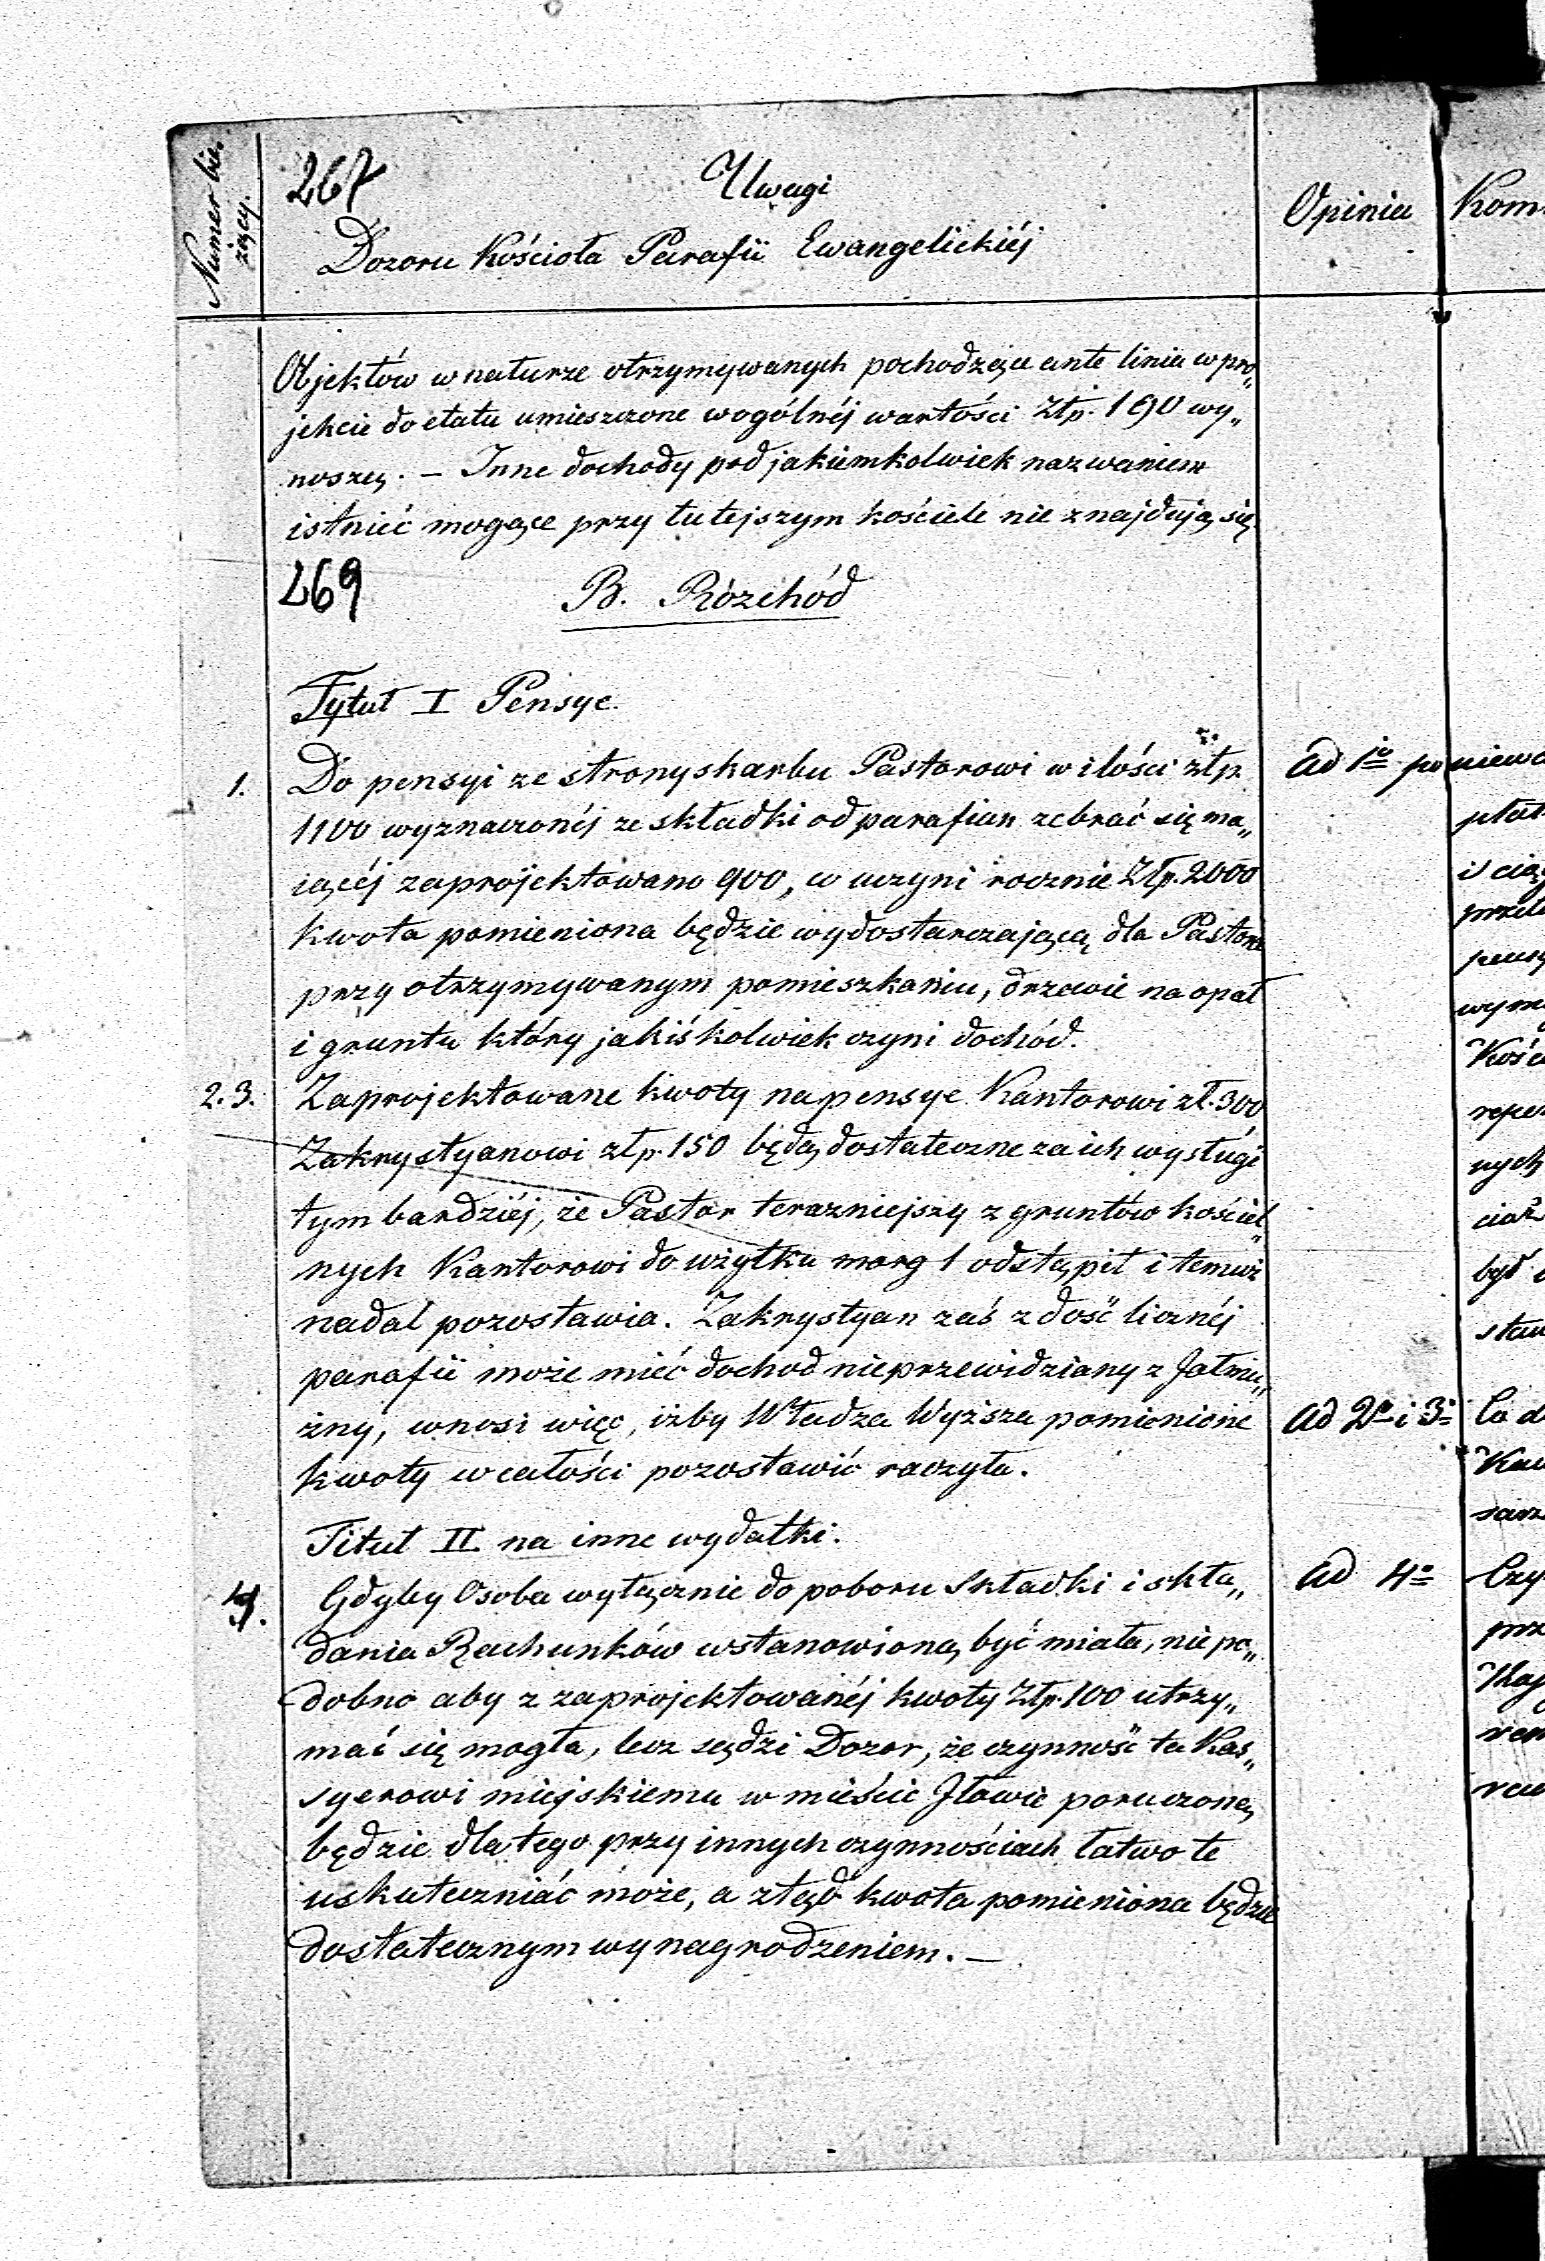 Numer bie,
żący.
267
Uwagi
Dozoru Kościoła Parafii Ewangelickiéj
Opinia Kom
Objektów w naturze otrzymywanych pochodzące ante linia w pro„
jekcie do etatu umieszczone wogólnéj wartości Złp. 190 wy„
noszą. — Inne dochody pod jakiemkolwiek nazwaniem
istnieć mogące przy tutejszym kościele nie znajdują się
269
B. Rozchód
Tytuł I Pensye.
1. Do pensyi ze strony skarbu Pastorowi w ilości złp.
1100 wyznaczonéj ze składki od parafian zebrać się ma„
iącéj zaprojektowano 900, co uczyni rocznie Złp. 2000
kwota pomieniona będzie wydostarczającą dla Pastora
przy otrzymywanym pomieszkaniu, drzewie na opał
i gruntu który jakiśkolwiek czyni dochód.
2. 3. Zaprojektowane kwoty na pensye Kantorowi zł. 300
Zakrystyanowi złp. 150 będą dostateczne za ich wysługi
tym bardziéj, że Pastor terazniejszy z gruntów kościel„
nych Kantorowi do użytku morg 1 odstąpił i temuż
nadal pozostawia. Zakrystyan zaś z dość licznéj
parafii może mieć dochod nieprzewidziany z Jałmu„
żny, wnosi więc, iżby Władza Wyższa pomienione
kwoty w całości pozostawić raczyła.
Titul II na inne wydatki.
4. Gdyby Osoba wyłącznie do poboru Składki i skła„
dania Rachunków ustanowioną być miała, nie po„
dobno aby z zaprojektowanéj kwoty Złp. 100 utrzy„
mać się mogła, lecz sądzi Dozor, że czynność ta Kas„
syerowi miejskiemu w mieście Jłowie poruczoną
będzie dla tego przy innych czynnościach łatwo te
uskuteczniać może, a ztąd kwota pomieniona będzie
dostatecznym wynagrodzeniem. —
ad 1o poniewa
płat
i ciąg
przeto
pensy
wym
Kości
repe
nych
ciaż
był
staw
ad 2o i 3o Co d
Kan
sarz
ad 4o Czy
prz